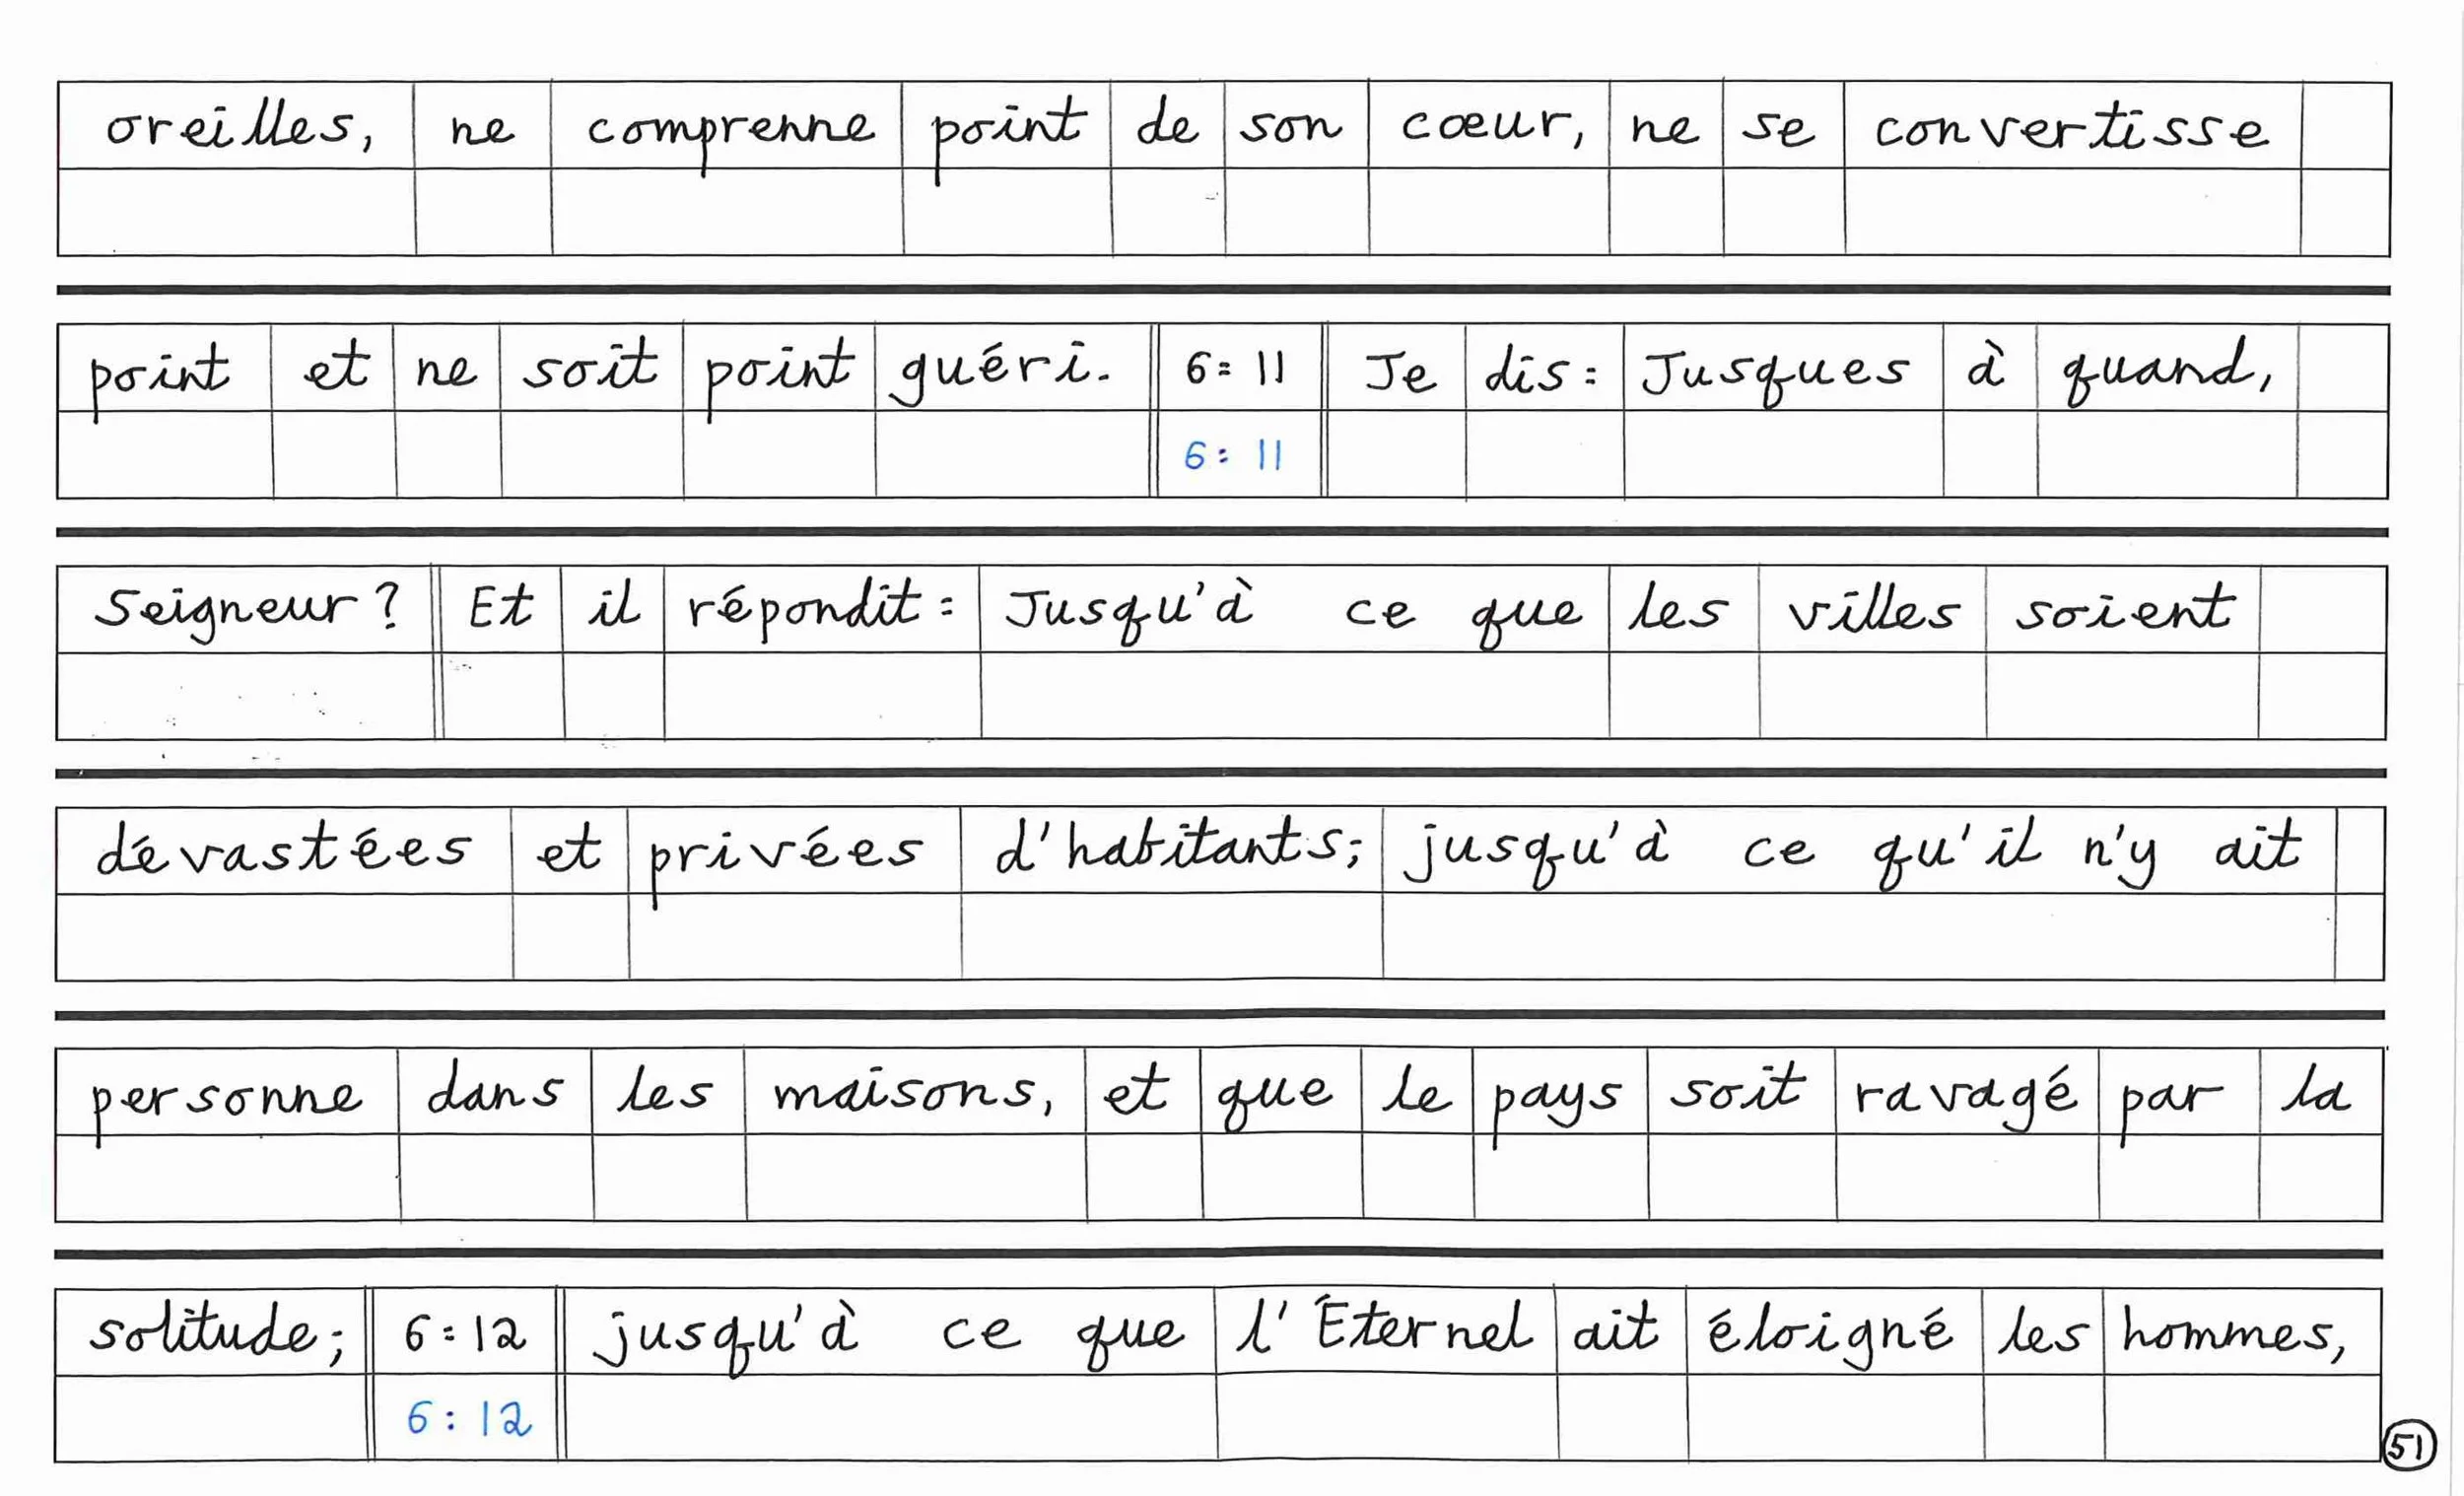 oreilles, ne comprenne point de son cœur, ne se convertisse
point et ne soit point guéri. 6:11 Je dis: Jusques à quand,
6:11
Seigneur? Et il répondit: Jusqu'à ce que les villes soient
dévastées et privées d'habitants; jusqu'à ce qu'il n'y ait
personne dans les maisons, et que le pays soit ravagé par la
solitude; 6:12 jusqu'à ce que l'Éternel ait éloigné les hommes,
6:12
51